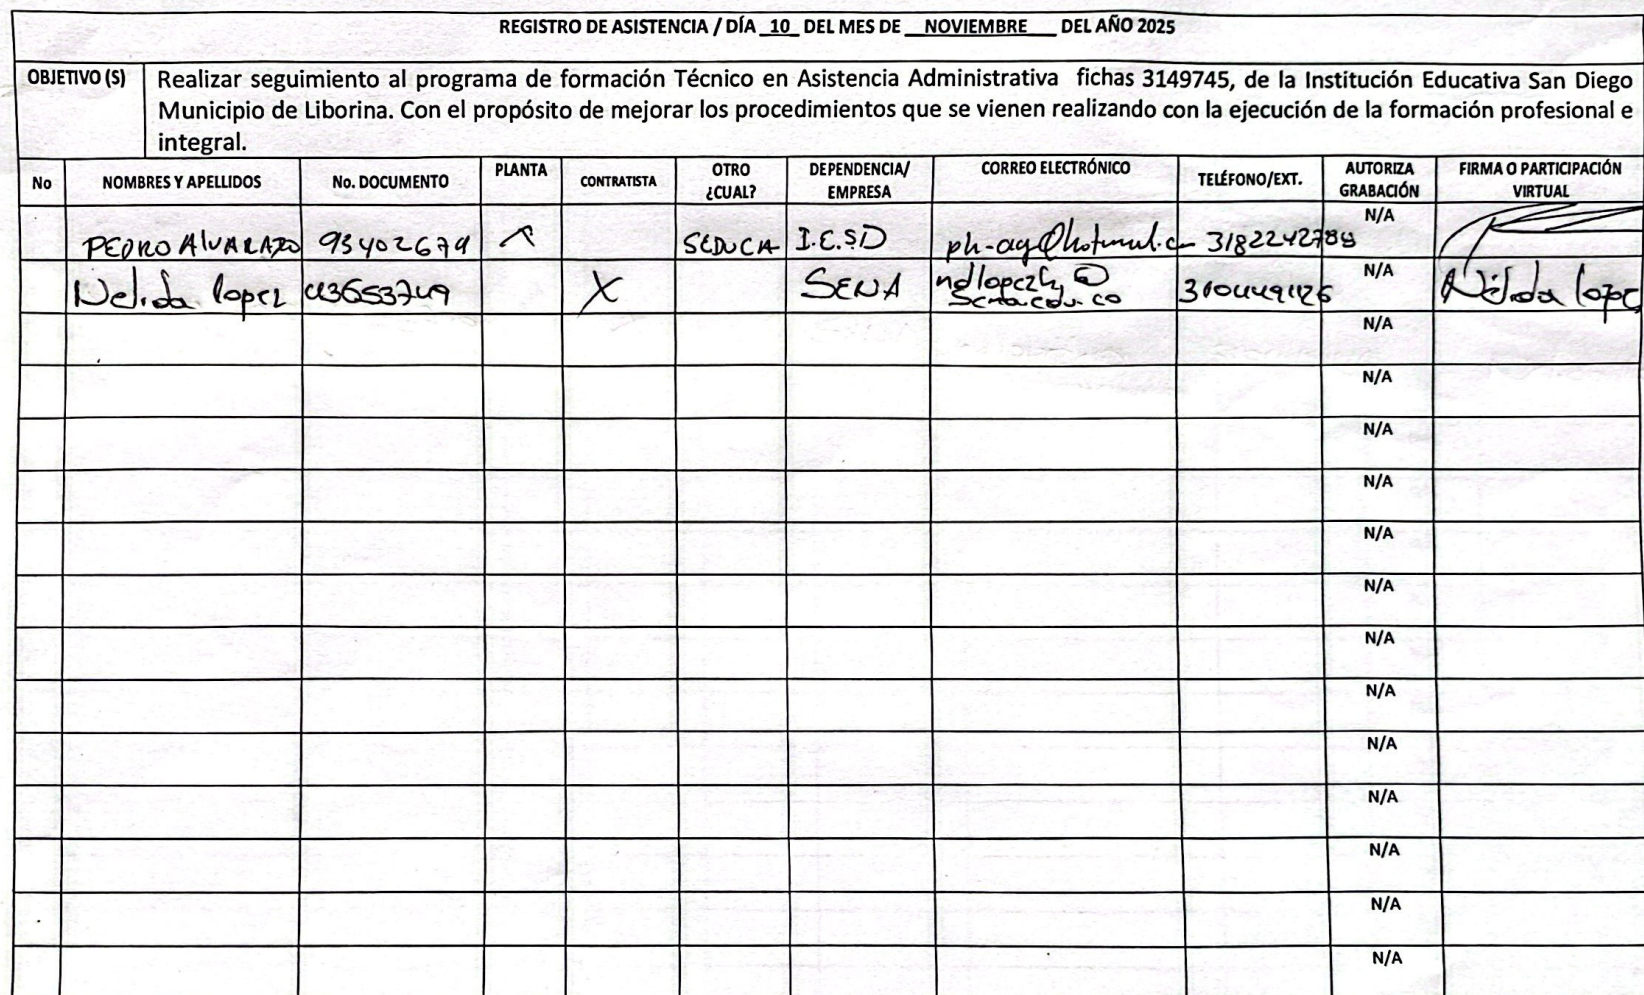 REGISTRO DE ASISTENCIA / DÍA 10 DEL MES DE NOVIEMBRE DEL AÑO 2025
OBJETIVO (S)
Realizar seguimiento al programa de formación Técnico en Asistencia Administrativa fichas 3149745, de la Institución Educativa San Diego
Municipio de Liborina. Con el propósito de mejorar los procedimientos que se vienen realizando con la ejecución de la formación profesional e
integral.
No NOMBRES Y APELLIDOS No. DOCUMENTO PLANTA CONTRATISTA OTRO ¿CUAL? DEPENDENCIA/ EMPRESA CORREO ELECTRÓNICO TELÉFONO/EXT. AUTORIZA GRABACIÓN FIRMA O PARTICIPACIÓN VIRTUAL
PEDRO AlVARAZO 93402679 SEDUCA I.E.SD 3182242788 N/A
Nelida lopez X SENA N/A Nélida lopez
N/A
N/A
N/A
N/A
N/A
N/A
N/A
N/A
N/A
N/A
N/A
N/A
N/A